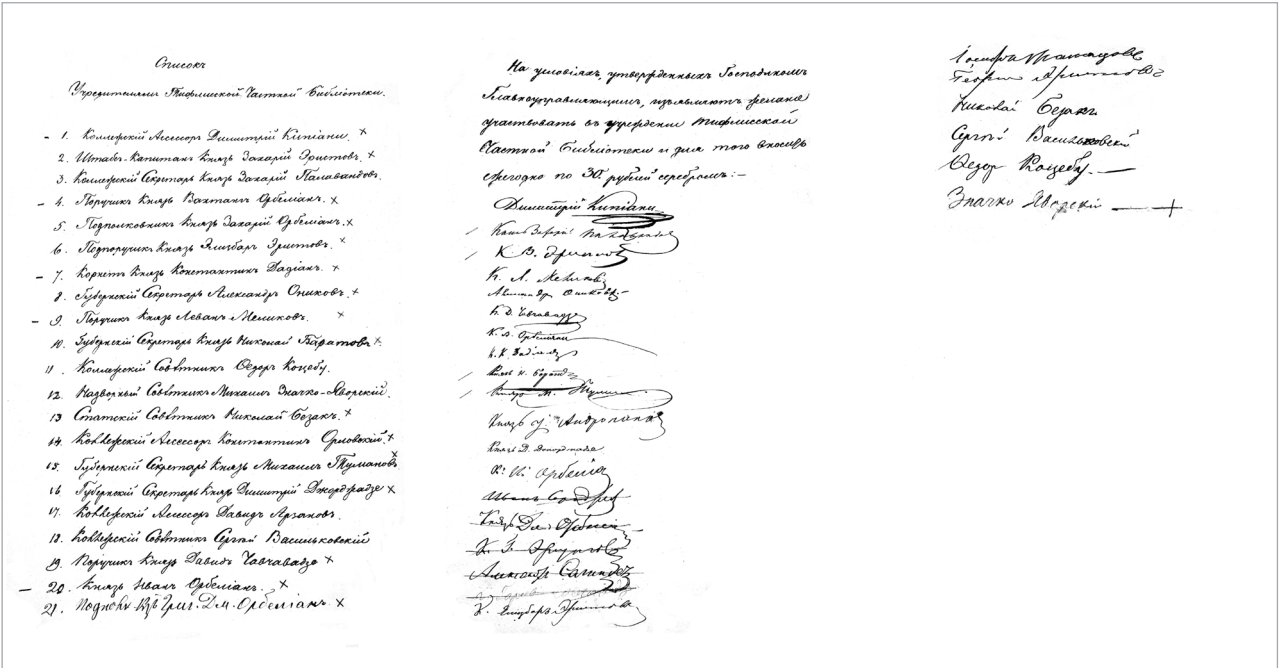 Списокъ
Учредителямъ Тифлисской Частной Библіотеки.
1. Коллежскій Ассесоръ Димитрій Кипіани. ×
2. Штабсъ-Капитанъ Князь Захарій Эристовъ. ×
3. Коллежскій Секретарь Князь Захарій Палавандовъ.
4. Поручикъ Князь Вахтангъ Орбеліанъ. ×
5. Подполковникъ Князь Захарій Орбеліанъ. ×
6. Подпоручикъ Князь Элизбаръ Эристовъ. ×
7. Корнетъ Князь Константинъ Дадіанъ. ×
8. Губернскій Секретарь Александръ Ониковъ. ×
9. Поручикъ Князь Леванъ Меликовъ. ×
10. Губернскій Секретарь Князь Николай Баратовъ ×
11. Коллежскій Совѣтникъ Ѳедоръ Коцебу.
12. Надворный Совѣтникъ Михаилъ Значко-Яворскій.
13 Статскій Совѣтникъ Николай Безакъ. ×
14. Коллежскій Ассесоръ Константинъ Орловскій. ×
15. Губернскій Секретарь Князь Михаилъ Тумановъ ×
16. Губернскій Секретарь Князь Димитрій Джорджадзе ×
17. Коллежскій Ассесоръ Давидъ Арзановъ.
18. Коллежскій Совѣтникъ Сергѣй Васильковскій
19. Поручикъ Князь Давидъ Чавчавадзе ×
20. Князь Иванъ Орбеліанъ. ×
21. Князь Григ. Дм. Орбеліанъ ×
На условіяхъ, утвержденныхъ Господиномъ
Главноуправляющимъ, изъявляютъ желаніе
участвовать въ учрежденіи Тифлисской
Частной Библіотеки и для того вносить
ежегодно по 30 рублей серебромъ:—
Димитрій Кипіани
Князь Захарій Палавандовъ
К. В. Эристовъ
К. Л. Меликовъ
Александръ Ониковъ
К. Д. Чавчавадзе
К. В. Орбеліани
Князь Н. Барат
Князь М. Туман
Князь Андроникова
Князь Д. Джорджадзе
К. И. Орбеліан
Князь Дм. Орбеліан
Александръ
К. Элизбаръ Эристовъ
Георгій
Николай Безакъ
Сергѣй Васильковскій
Ѳедор Коцебу. —
Значко Яворскій —